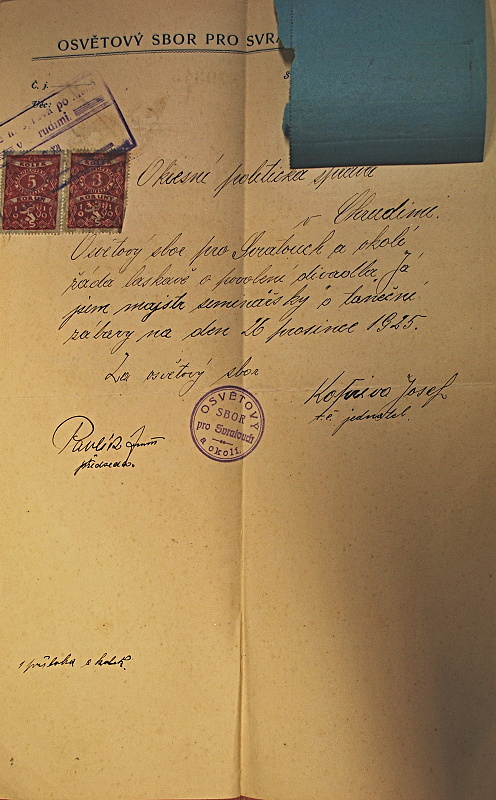 OSVĚTOVÝ SBOR PRO SVRA
Č. j.
Věc:
rudimi.
KOLEK
5
KORUN
KOLEK
KORUN
Okresní politická správa
v Chrudimi.
Osvětový sbor pro Svratouch a okolí
žádá laskavě o povolení divadla „Já
jsem majstr semenářský" a taneční
zábavy na den 26 prosince 1925.
Za osvětový sbor
Kopřiva Josef
t.č. jednatel
OSVĚTOVÝ
SBOR
pro Svratouch
a okolí
Pavlík
předseda.
1 příloha s kolk.